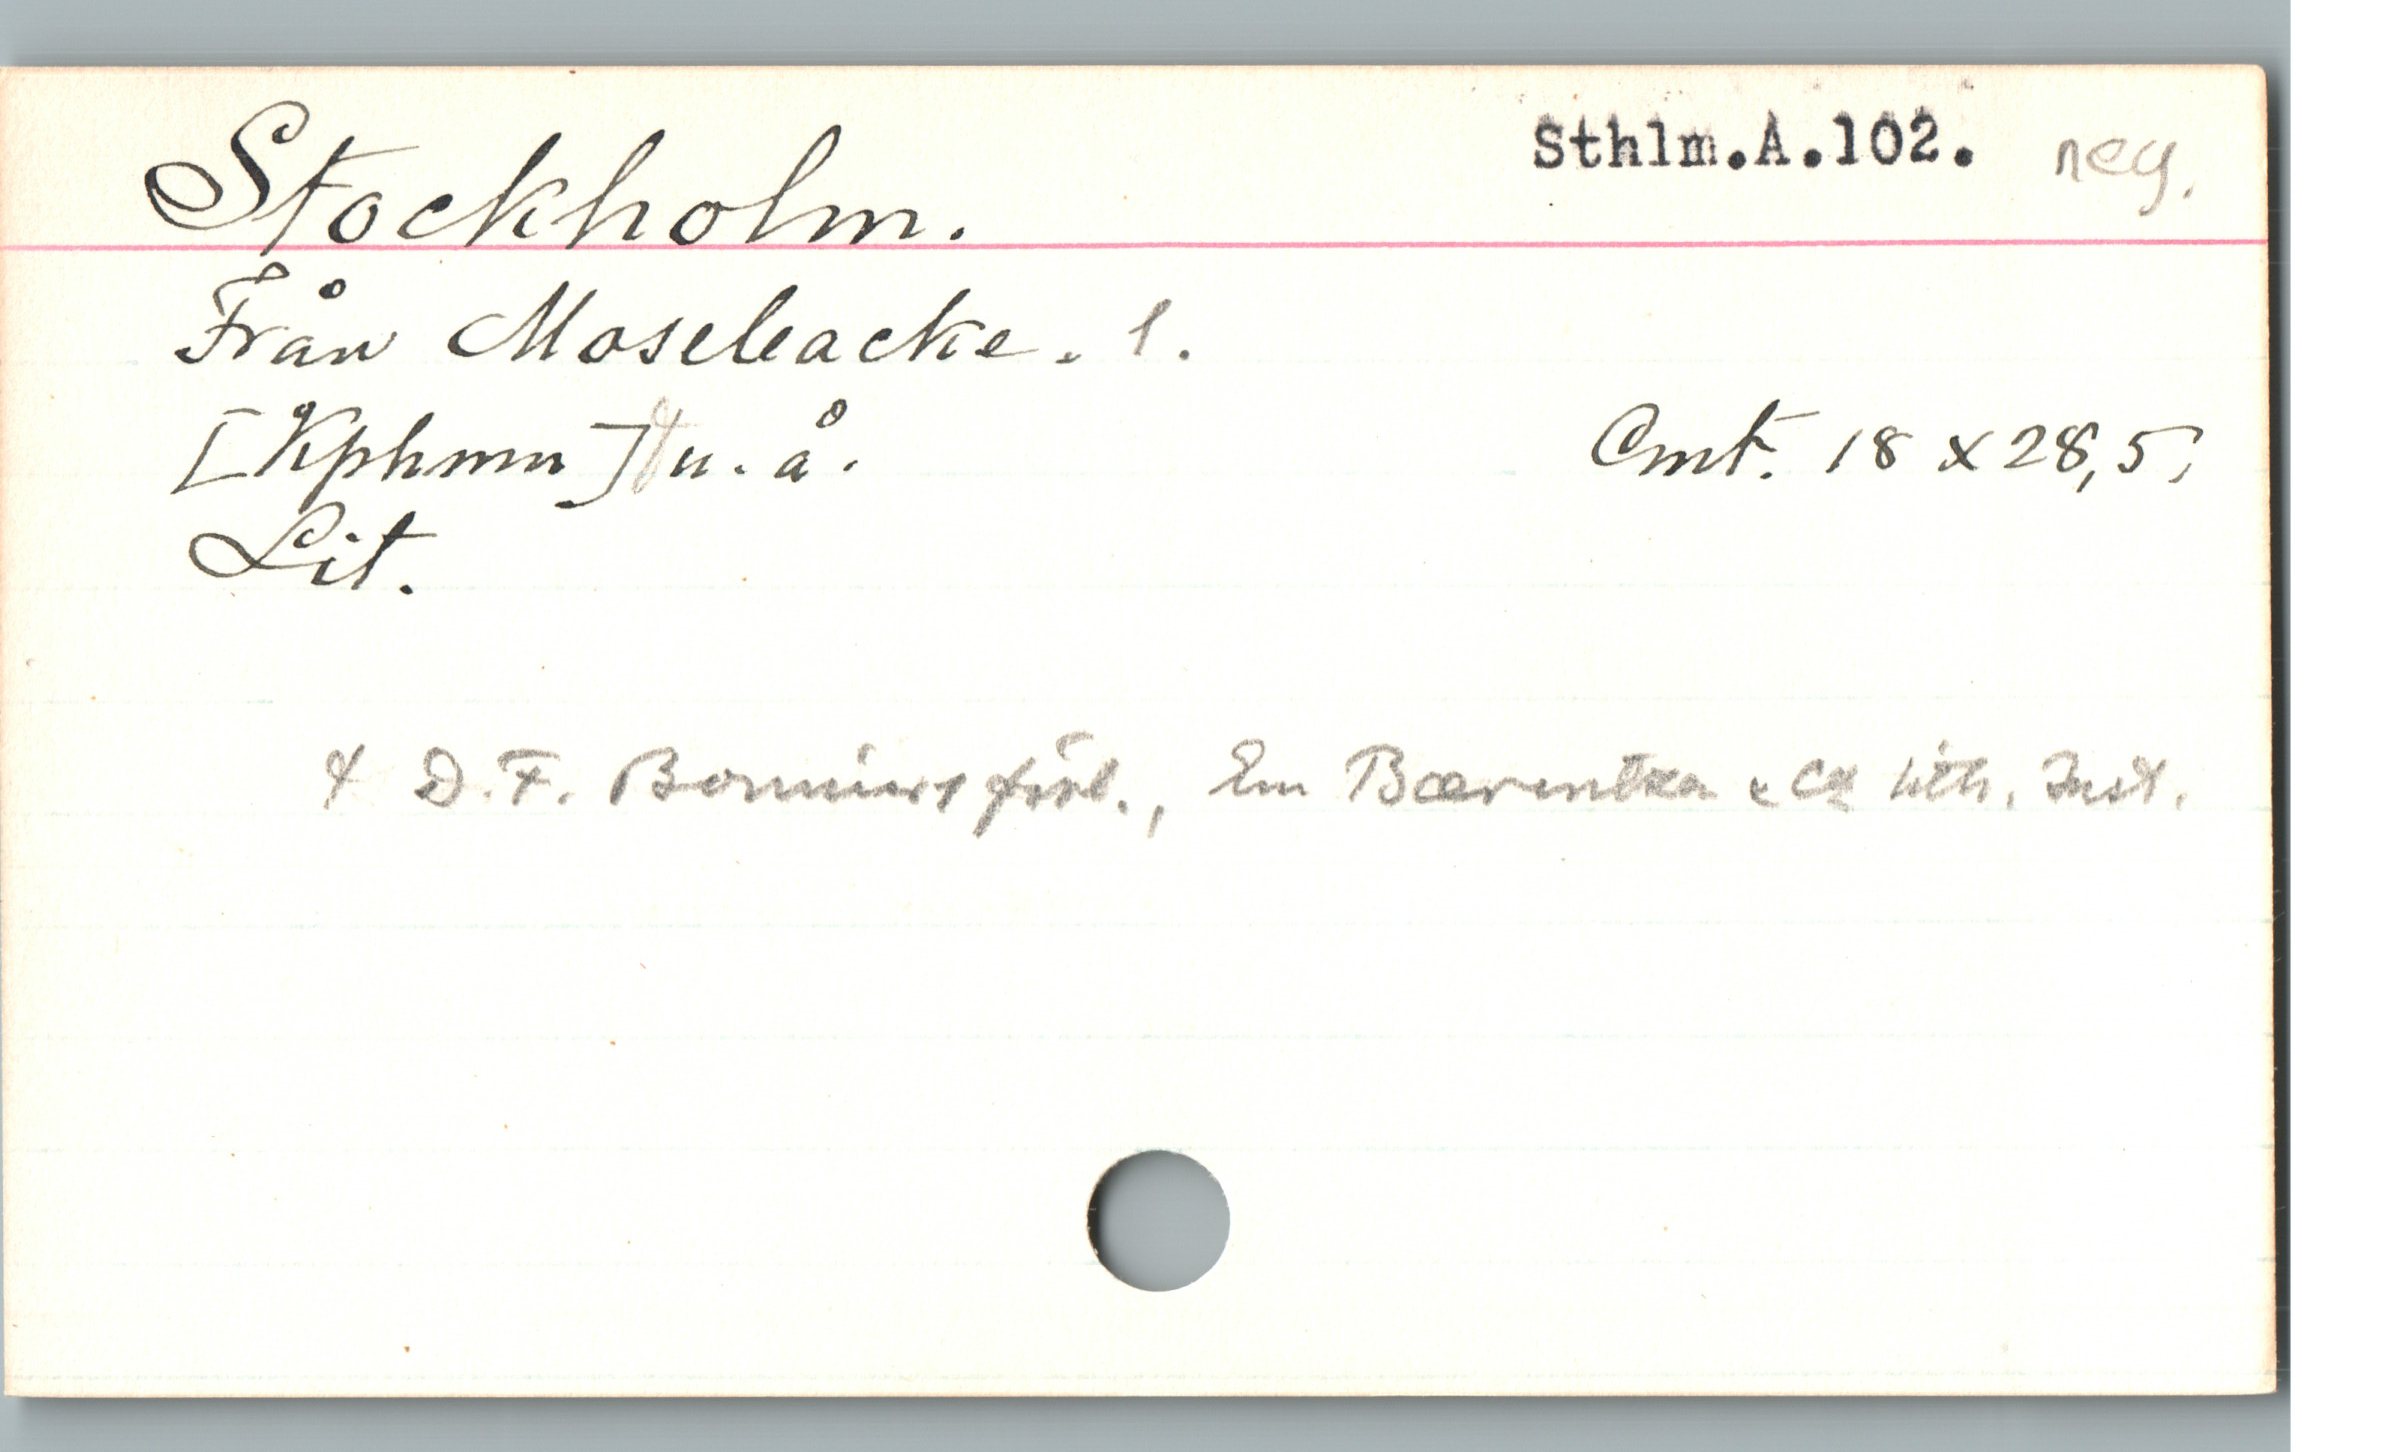 Stockholm.
Sthlm.A.102. neg.
Från Mosebacke. 1.
[Kphmn] u. å.
Cmt. 18 x 28,5.
Lit.
D. F. Bonniers förl., Em Bærentzen & Co lith. Inst.